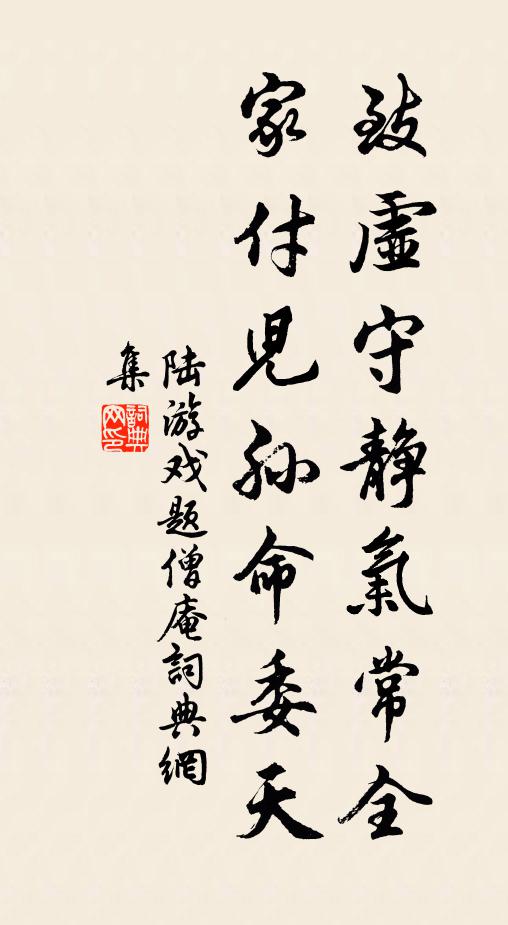 致虛守靜氣常全
家付兒孫命委天
陆游戏题僧庵詞典網
集
詞典
网印